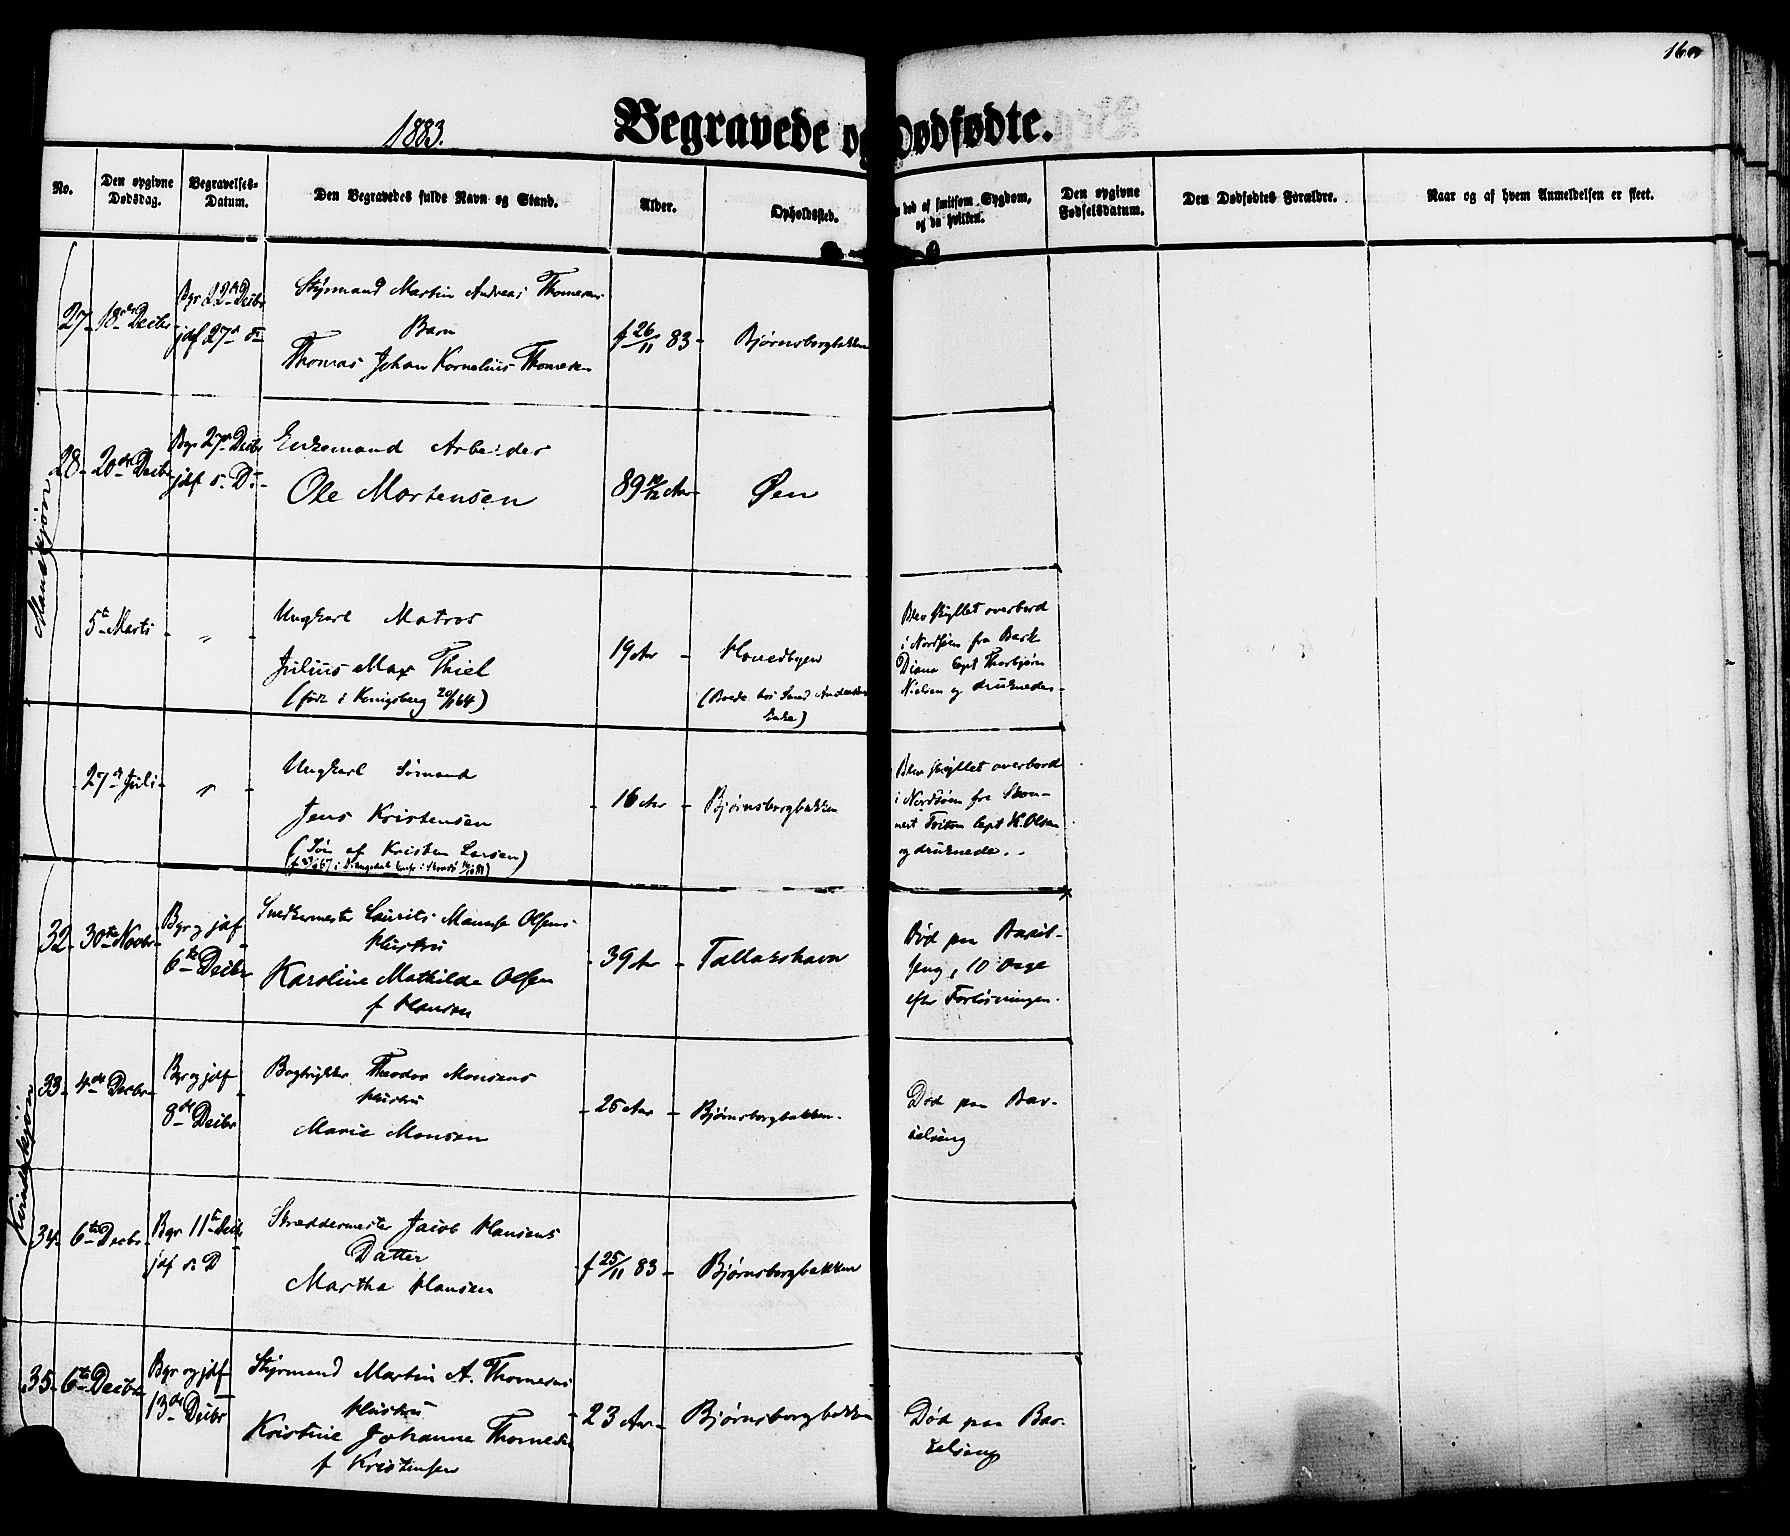 160
1883.
Begravede og Dødfødte.
No.
Den opgivne Dødsdag.
Begravelses-Datum.
Den Begravedes fulde Navn og Stand.
Alder.
Opholdssted.
død af smitsom Sygdom, og da hvilken.
Den opgivne Fødselsdatum.
Den Dødfødtes Forældre.
Naar og af hvem Anmeldelsen er skeet.
Mandkjøn
27
18de Decbr
Bgr 22de Decbr
jdf 27de
Styrmand Martin Andreas Thomesens
Barn
Thomas Johan Kornelius Thomesen
f 26/11 83
Bjørnsborgbakken
28
20de Decbr
Bgr 27de Decbr
jdf s. D.
Enkemand Arbeider
Ole Mortensen
89 10/12 Aar
Øen
5te Marts
"
Ungkarl Matros
Julius Max Thiel
(født i Kønigsberg 64)
19 Aar
Hovedbyen
(Boede hos Smed Andersens
Enke)
Blev skyllet overbord
i Nordsøen fra Bark
Diana Capt Thorbjørn
Nielsen og druknede
27de Juli
"
Ungkarl Sømand
Jens Kristensen
(Søn af Kristen Larsen)
16 Aar
Bjørnsborgbakken
Blev skyllet overbord
i Nordsøen fra Skon-
nert Triton Capt K. Olsen
og druknede.
Kvindekjøn
32
30te Novbr
Bgr og jdf
6te Decbr
Snedkermester Laurits Olsens
Hustru
Karoline Mathilde Olsen
f Hansen
39 Aar
Tallakshavn
Død paa Barsel-
seng, 10 Dage
efter Forløsningen.
33
4de Decbr
Bgr og jdf
8de Decbr
Bogtrykker Theodor Monsens
Hustru
Marie Monsen
25 Aar
Bjørnsborgbakken
Død paa Bar-
selseng
34
6te Decbr
Bgr 11te Decbr
jdf s. D
Skræddermester Jacob Hansens
Datter
Martha Hansen
f 25/11 83
Bjørnsborgbakken
35
6te Decbr
Bgr og jdf
13de Decbr
Styrmand Martin A. Thomesens
Hustru
Kristine Johanne Thomesen
f Kristensen
23 Aar
Bjørnsborgbakken
Død paa Bar-
selseng